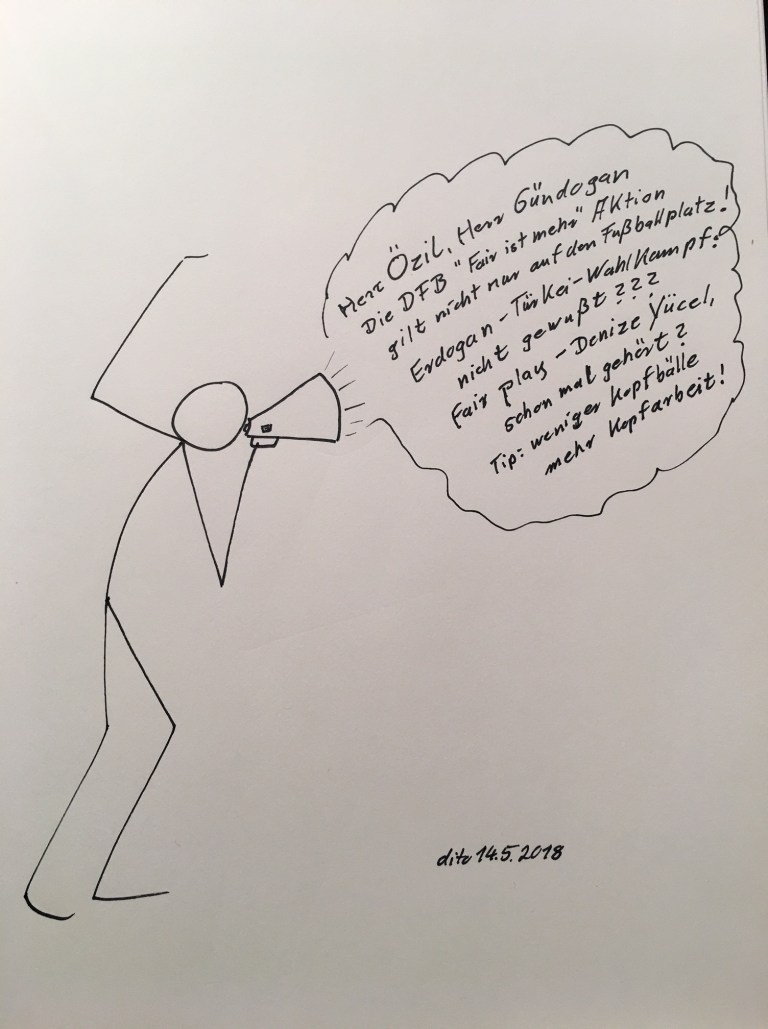 Herr Özil, Herr Gündogan
Die DFB "Fair ist mehr" Aktion
gilt nicht nur auf den Fußballplatz!
Erdogan-Türkei-Wahlkampf?
nicht gewußt???
Fair play - Denize Yücel,
schon mal gehört?
Tip: weniger Kopfbälle
mehr Kopfarbeit!
dito 14.5.2018